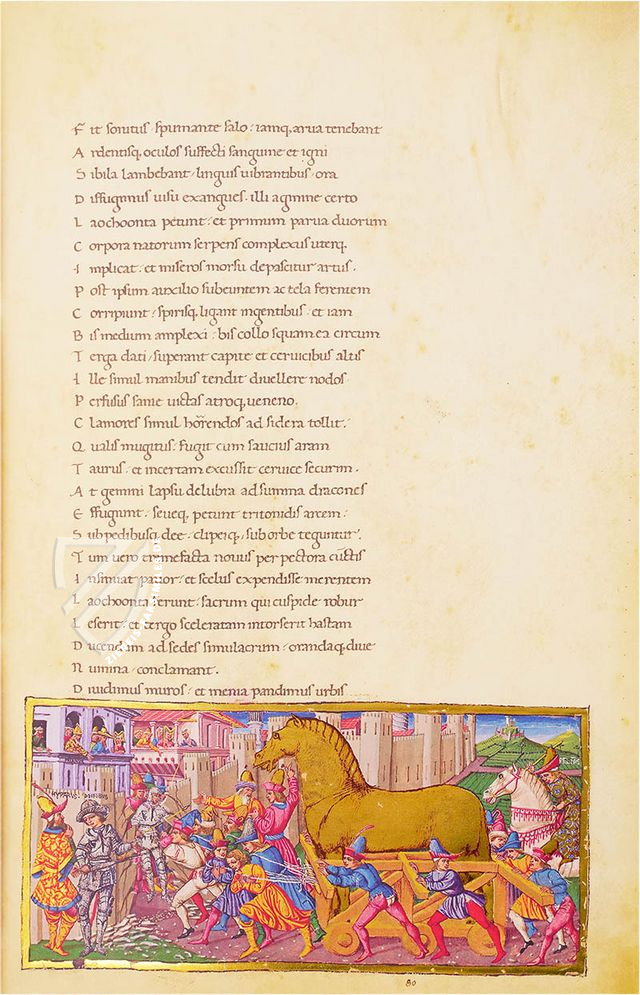 F it sonitus spumante salo: iamq, arua tenebant
A rdentisq, oculos suffecti sanguine et igni
S ibila lambebant linguis uibrantibus ora
D iffugimus uisu exangues. illi agmine certo
L aochoonta petunt: et primum parua duorum
C orpora natorum serpens complexus uterq,
I mplicat: et miseros morsu depascitur artus.
P ost ipsum auxilio subeuntem ac tela ferentem
C orripiunt: spirisq, ligant ingentibus: et iam
B is medium amplexi: bis collo squamea circum
T erga dati, superant capite et ceruicibus altis
I lle simul manibus tendit diuellere nodos
P erfusus sanie uictas atroq, ueneno.
C lamores simul horrendos ad sidera tollit.
Q ualis mugitus: fugit cum saucius aram
T aurus: et incertam excussit ceruice securim.
A t gemini lapsu delubra ad summa dracones
E ffugiunt: seueq, petunt tritonidis arcem:
S ub pedibusq, dee: clipeiq, sub orbe teguntur.
T um uero tremefacta nouus per pectora cunctis
I nsinuat pauor: et scelus expendisse merentem
L aochoonta ferunt: sacrum qui cuspide robur
L eserit: et tergo sceleratam intorserit hastam
D ucendum ad sedes simulacrum: orandaq, diue
N umina conclamant.
D iuidimus muros: et menia pandimus urbis
80